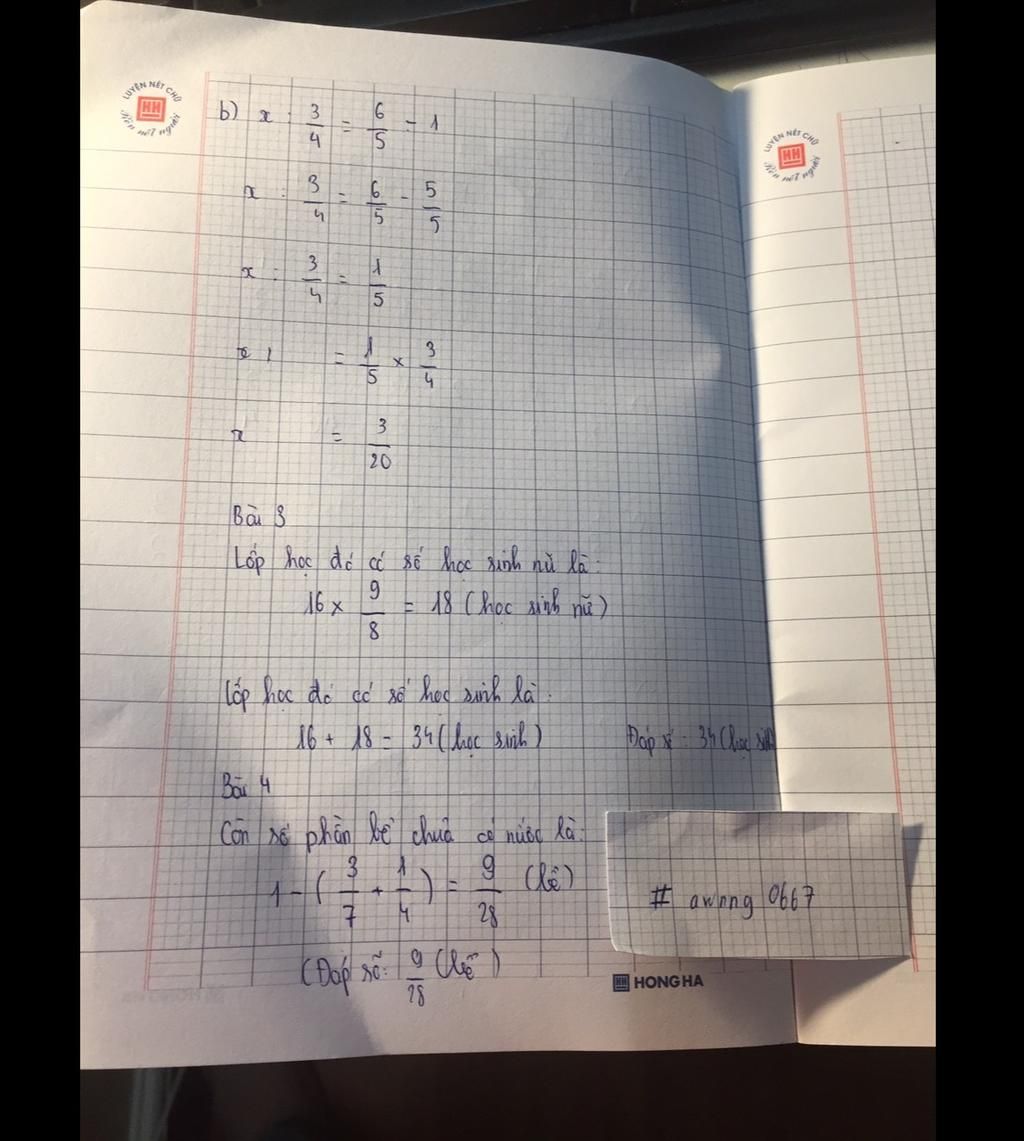 LUYỆN NÉT CHỮ
HH
Rèn nết người
b) x : 3/4 = 6/5 - 1
x : 3/4 = 6/5 - 5/5
x : 3/4 = 1/5
x = 1/5 × 3/4
x = 3/20
Bài 3
Lớp học đó có số học sinh nữ là:
16 × 9/8 = 18 (học sinh nữ)
Lớp học đó có số học sinh là:
16 + 18 = 34 (học sinh)
Đáp số: 34 (học sinh
Bài 4
Còn số phần bể chưa có nước là:
1 - (3/7 + 1/4) = 9/28 (bể)
(Đáp số: 9/28 (bể)
# awnng 0667
HH HONG HA
LUYỆN NÉT CHỮ
HH
Rèn nết người